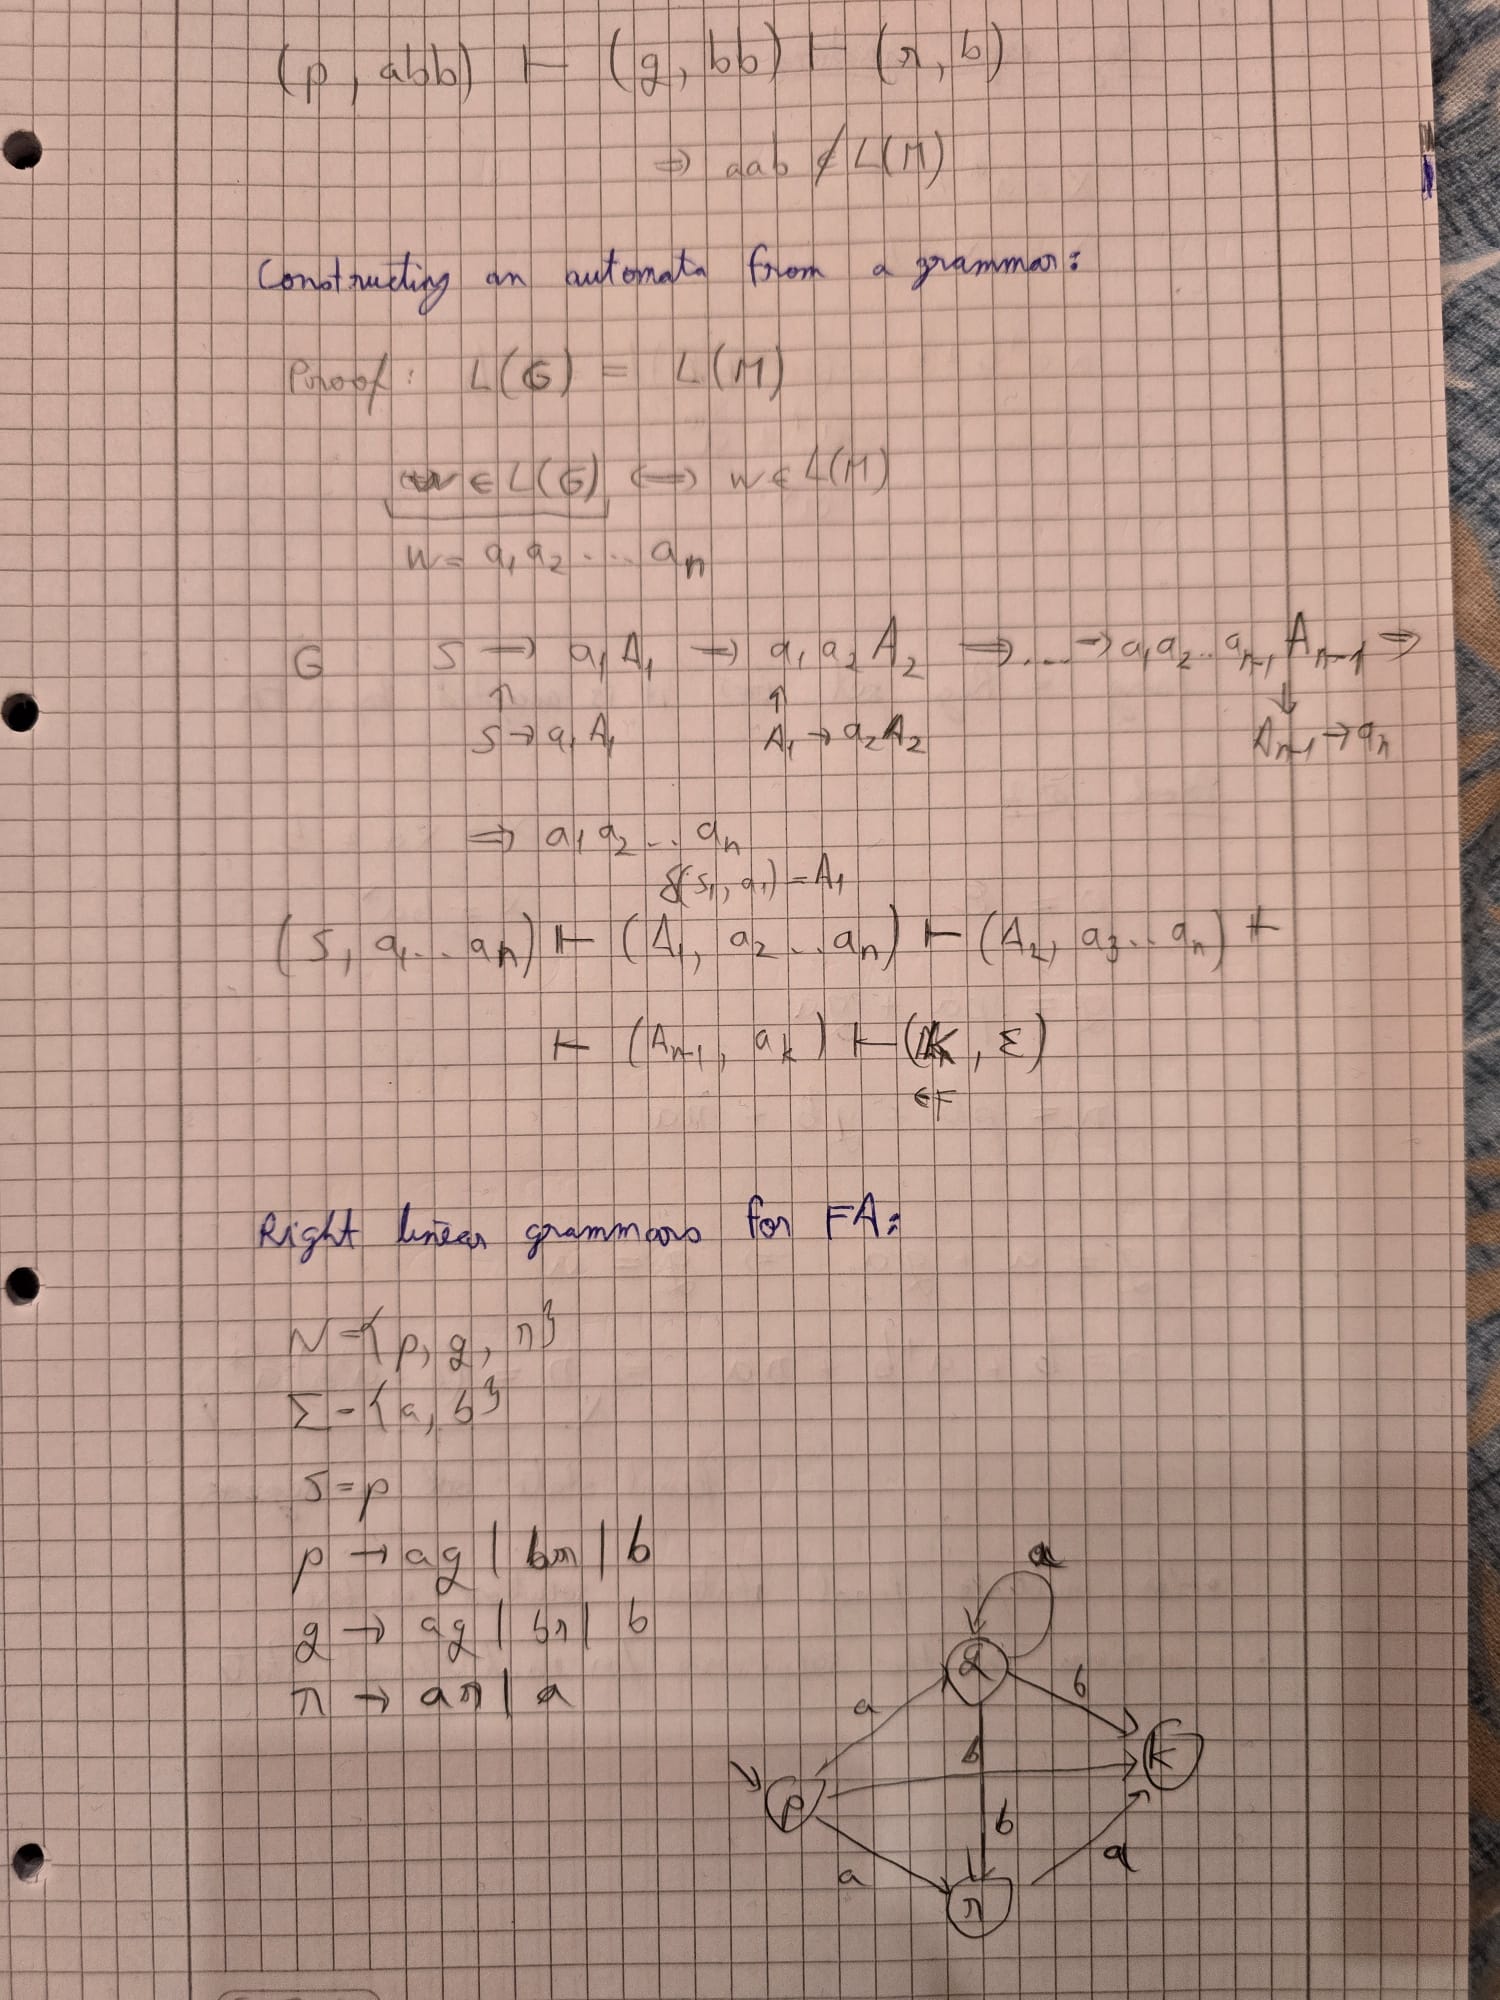 (p, abb) ⊢ (q, bb) ⊢ (r, b)
⇒ aab ∉ L(M)
Constructing an automata from a grammar:
Proof: L(G) = L(M)
w ∈ L(G) ⟺ w ∈ L(M)
w = a₁ a₂ ... aₙ
G S → a₁ A₁ → a₁ a₂ A₂ ⇒ ... → a₁ a₂ .. aₙ₋₁ Aₙ₋₁ ⇒
↑ ↑ ↓
S → a₁ A₁ A₁ → a₂ A₂ Aₙ₋₁ → aₙ
⇒ a₁ a₂ ... aₙ
δ(S, a₁) = A₁
(S, a₁ ... aₙ) ⊢ (A₁, a₂ ... aₙ) ⊢ (A₂, a₃ ... aₙ) ⊢
⊢ (Aₙ₋₁, aₖ) ⊢ (K, Σ)
∈ F
Right linear grammars for FA:
N = {p, q, r}
Σ = {a, b}
S = p
p → aq | br | b
q → aq | br | b
r → ar | a
a
q
b
a
b
k
p
b
a
a
r